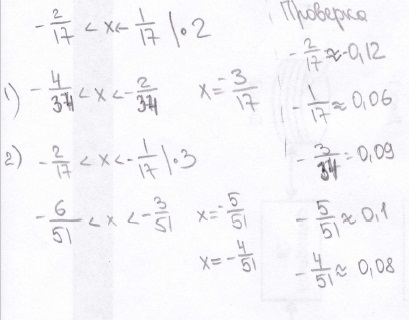 -2/17 < x < -1/17 |·2
1) -4/34 < x < -2/34    x = -3/17
2) -2/17 < x < -1/17 |·3
-6/51 < x < -3/51    x = -5/51
x = -4/51
Проверка
-2/17 ≈ -0,12
-1/17 ≈ 0,06
-3/34 = 0,09
-5/51 ≈ 0,1
-4/51 ≈ 0,08